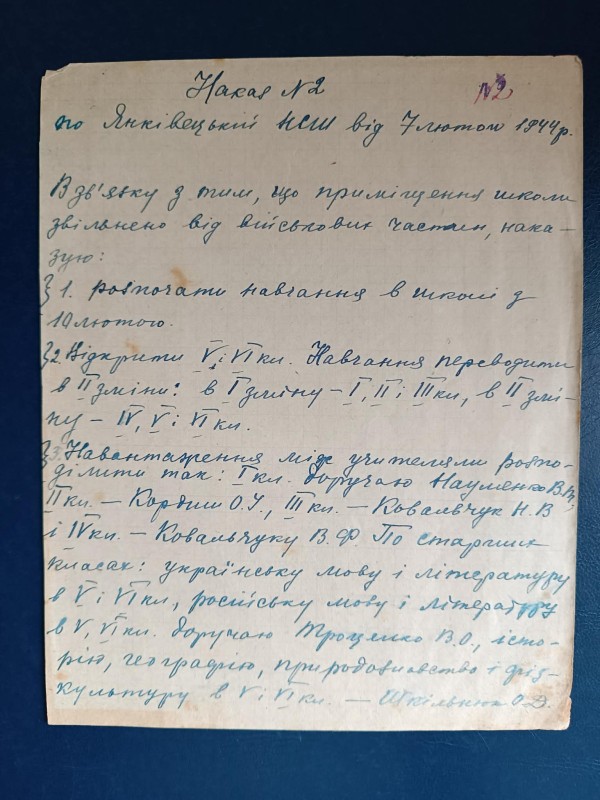 Наказ №2
№2
по Янківецькій НСШ від 7 лютого 1944 р.
В зв'язку з тим, що приміщення школи
звільнено від військових частин, нака-
зую:
§ 1. розпочати навчання в школі з
10 лютого.
§ 2. Відкрити V і VI кл. Навчання переводити
в II зміни: в I зміну – I, II і III кл, в II змі-
ну – IV, V і VI кл.
§ 3. Навантаження між учителями розпо-
ділити так: I кл. доручаю Науменко В.
II кл. – Кордиш О.У., III кл. – Ковальчук Н.В
і IV кл. – Ковальчуку В.Ф. По старших
класах: українську мову і літературу
в V і VI кл, російську мову і літературу
в V, VI кл. доручаю Троценко В.О., істо-
рію, географію, природознавство і фіз-
культуру в V і VI кл. – Шкільнюк О.Д.